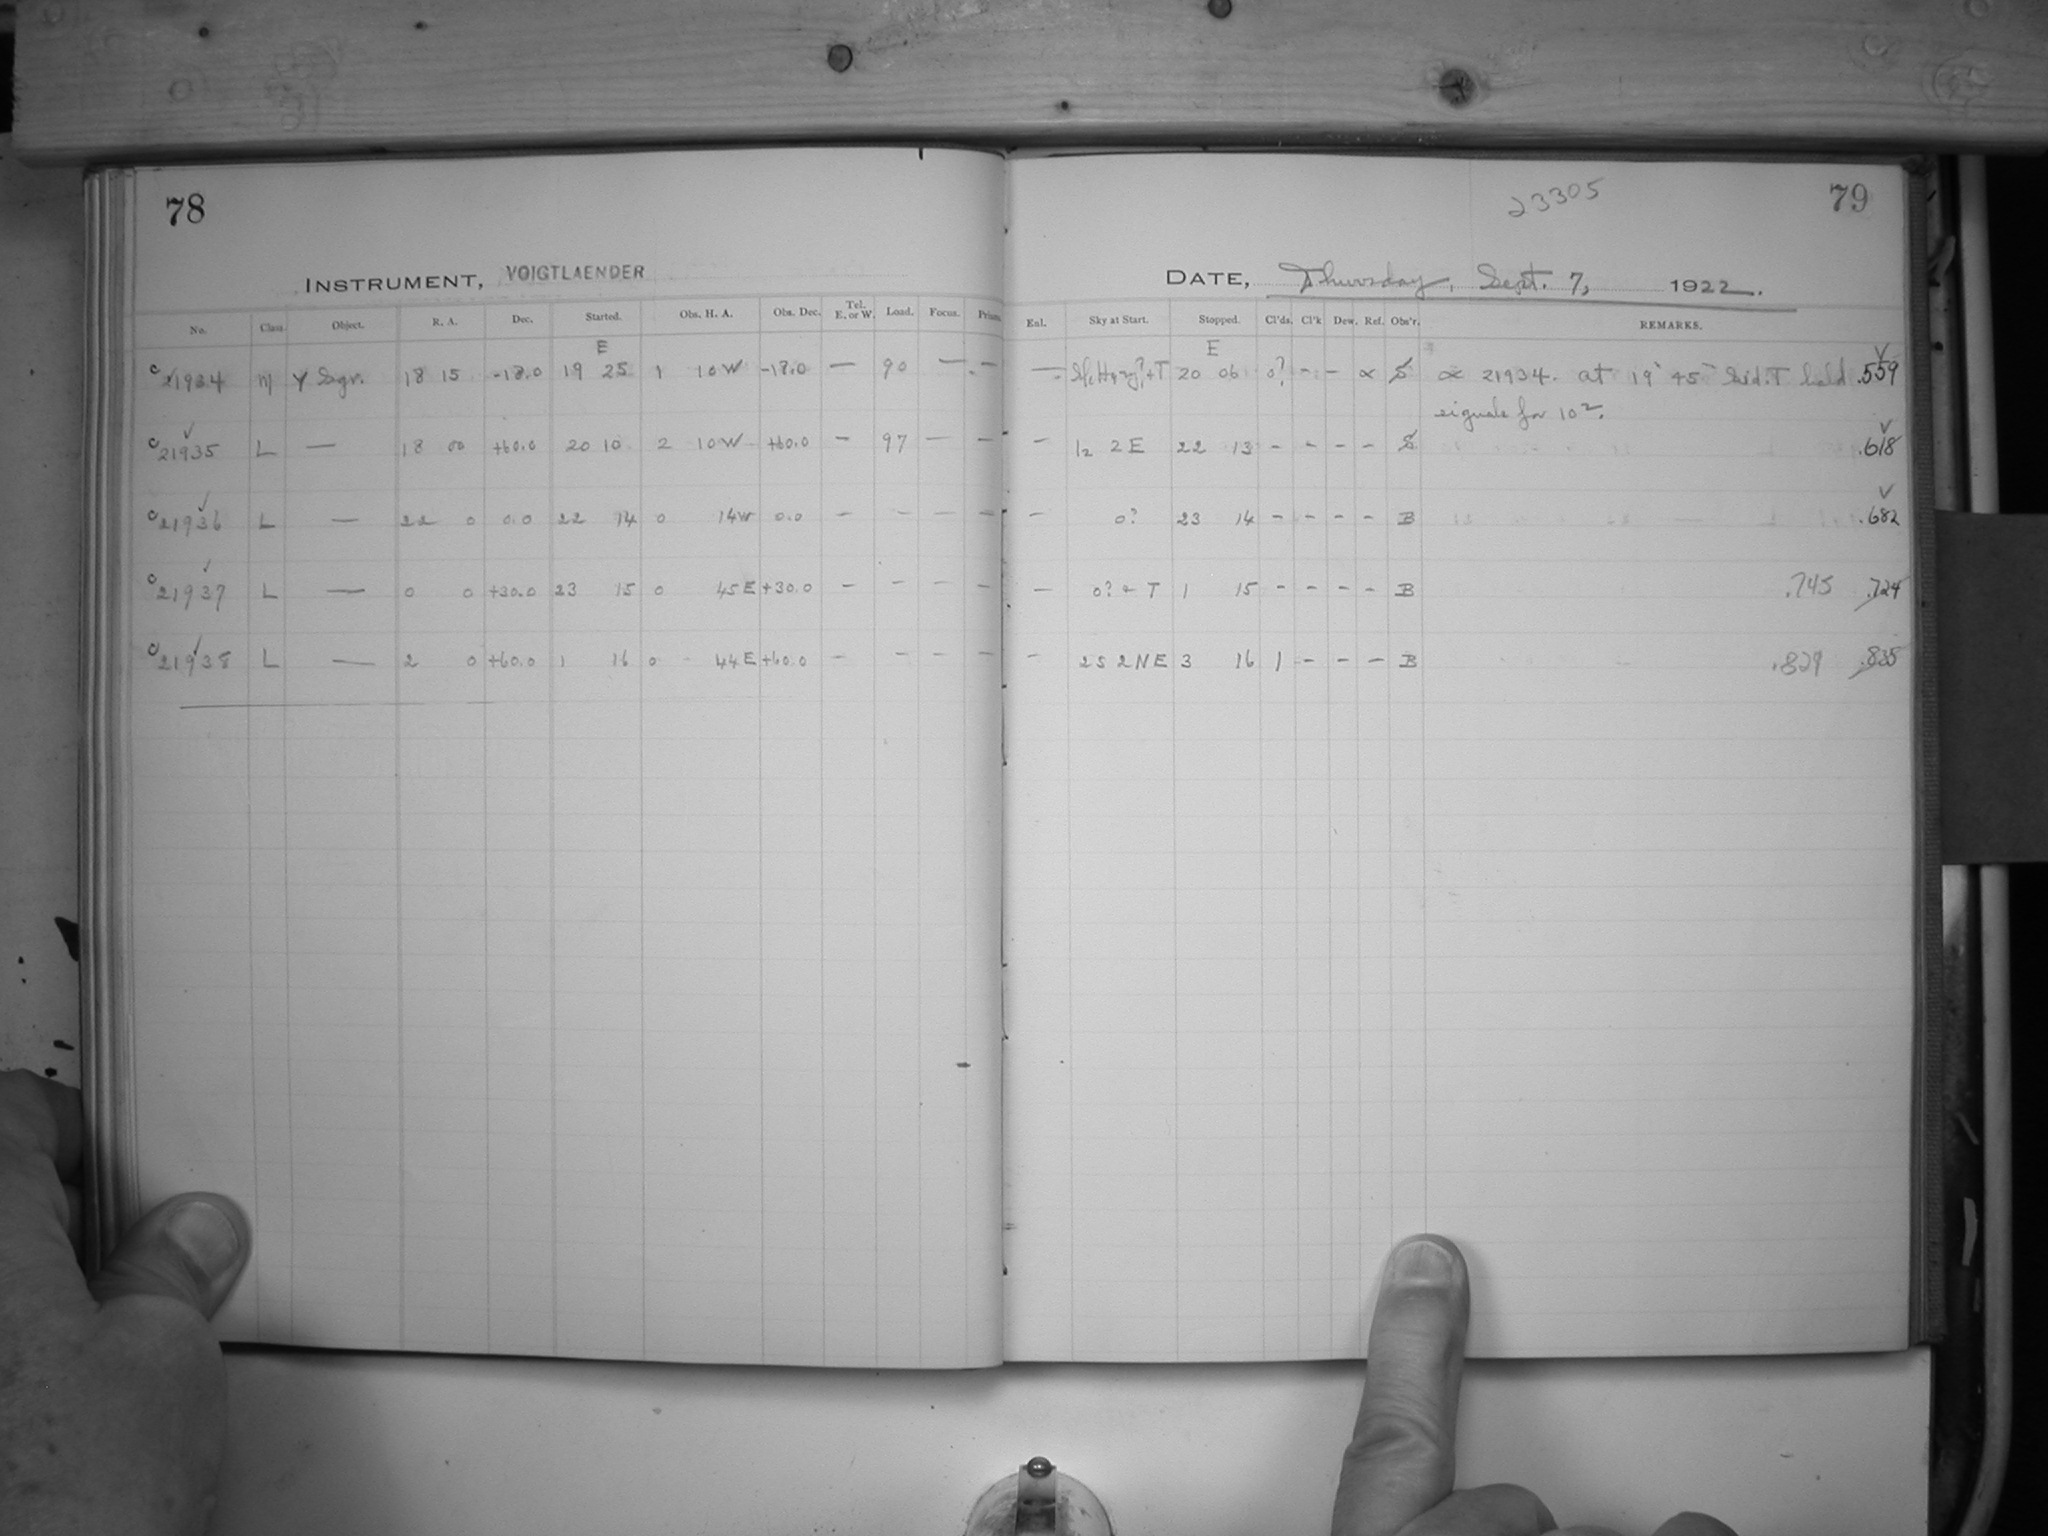 78
INSTRUMENT, VOIGTLAENDER
No. Class Object. R. A. Dec. Started. Obs. H. A. Obs. Dec. Tel. E. or W. Load. Focus. Prism.
E
c 21934 M Y Sgr. 18 15 -18.0 19 25 1 10 W -18.0 — 90 — —
c 21935 L — 18 00 +60.0 20 10 2 10 W +60.0 — 97 — —
c 21936 L — 22 0 0.0 22 14 0 14 W 0.0 — — — —
c 21937 L — 0 0 +30.0 23 15 0 45 E +30.0 — — — —
c 21938 L — 2 0 +60.0 1 16 0 44 E +60.0 — — — —
23305
79
DATE, Thursday, Sept. 7, 1922.
Enl. Sky at Start. Stopped. Cl'ds. Cl'k Dew. Ref. Obs'r. REMARKS.
E
— + T 20 06 0? - - ∝ S ∝ 21934. at 19 45 Sid. T held .559
signals for 10
— 2 E 22 13 - - - - S .618
— 0? 23 14 - - - - B .682
— 0? + T 1 15 - - - - B .745 .724
— 2S 2NE 3 16 1 - - - B .829 .835